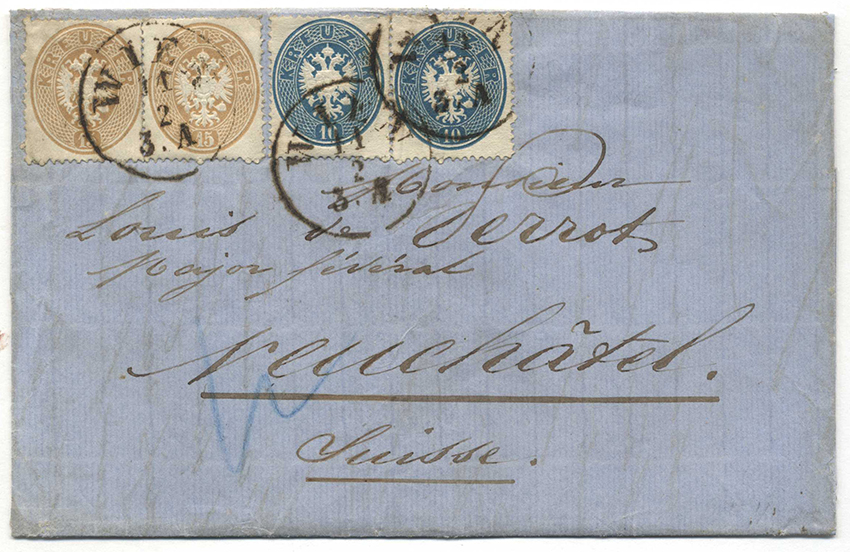 KREUZER 15
KREUZER 15
KREUZER 10
KREUZER 10
WIEN
11
2
3. A
WIEN
11
2
3. A
WIEN
11
2
3. A
Monsieur
Louis de Perrot
Major fédéral
Neuchâtel.
Suisse.